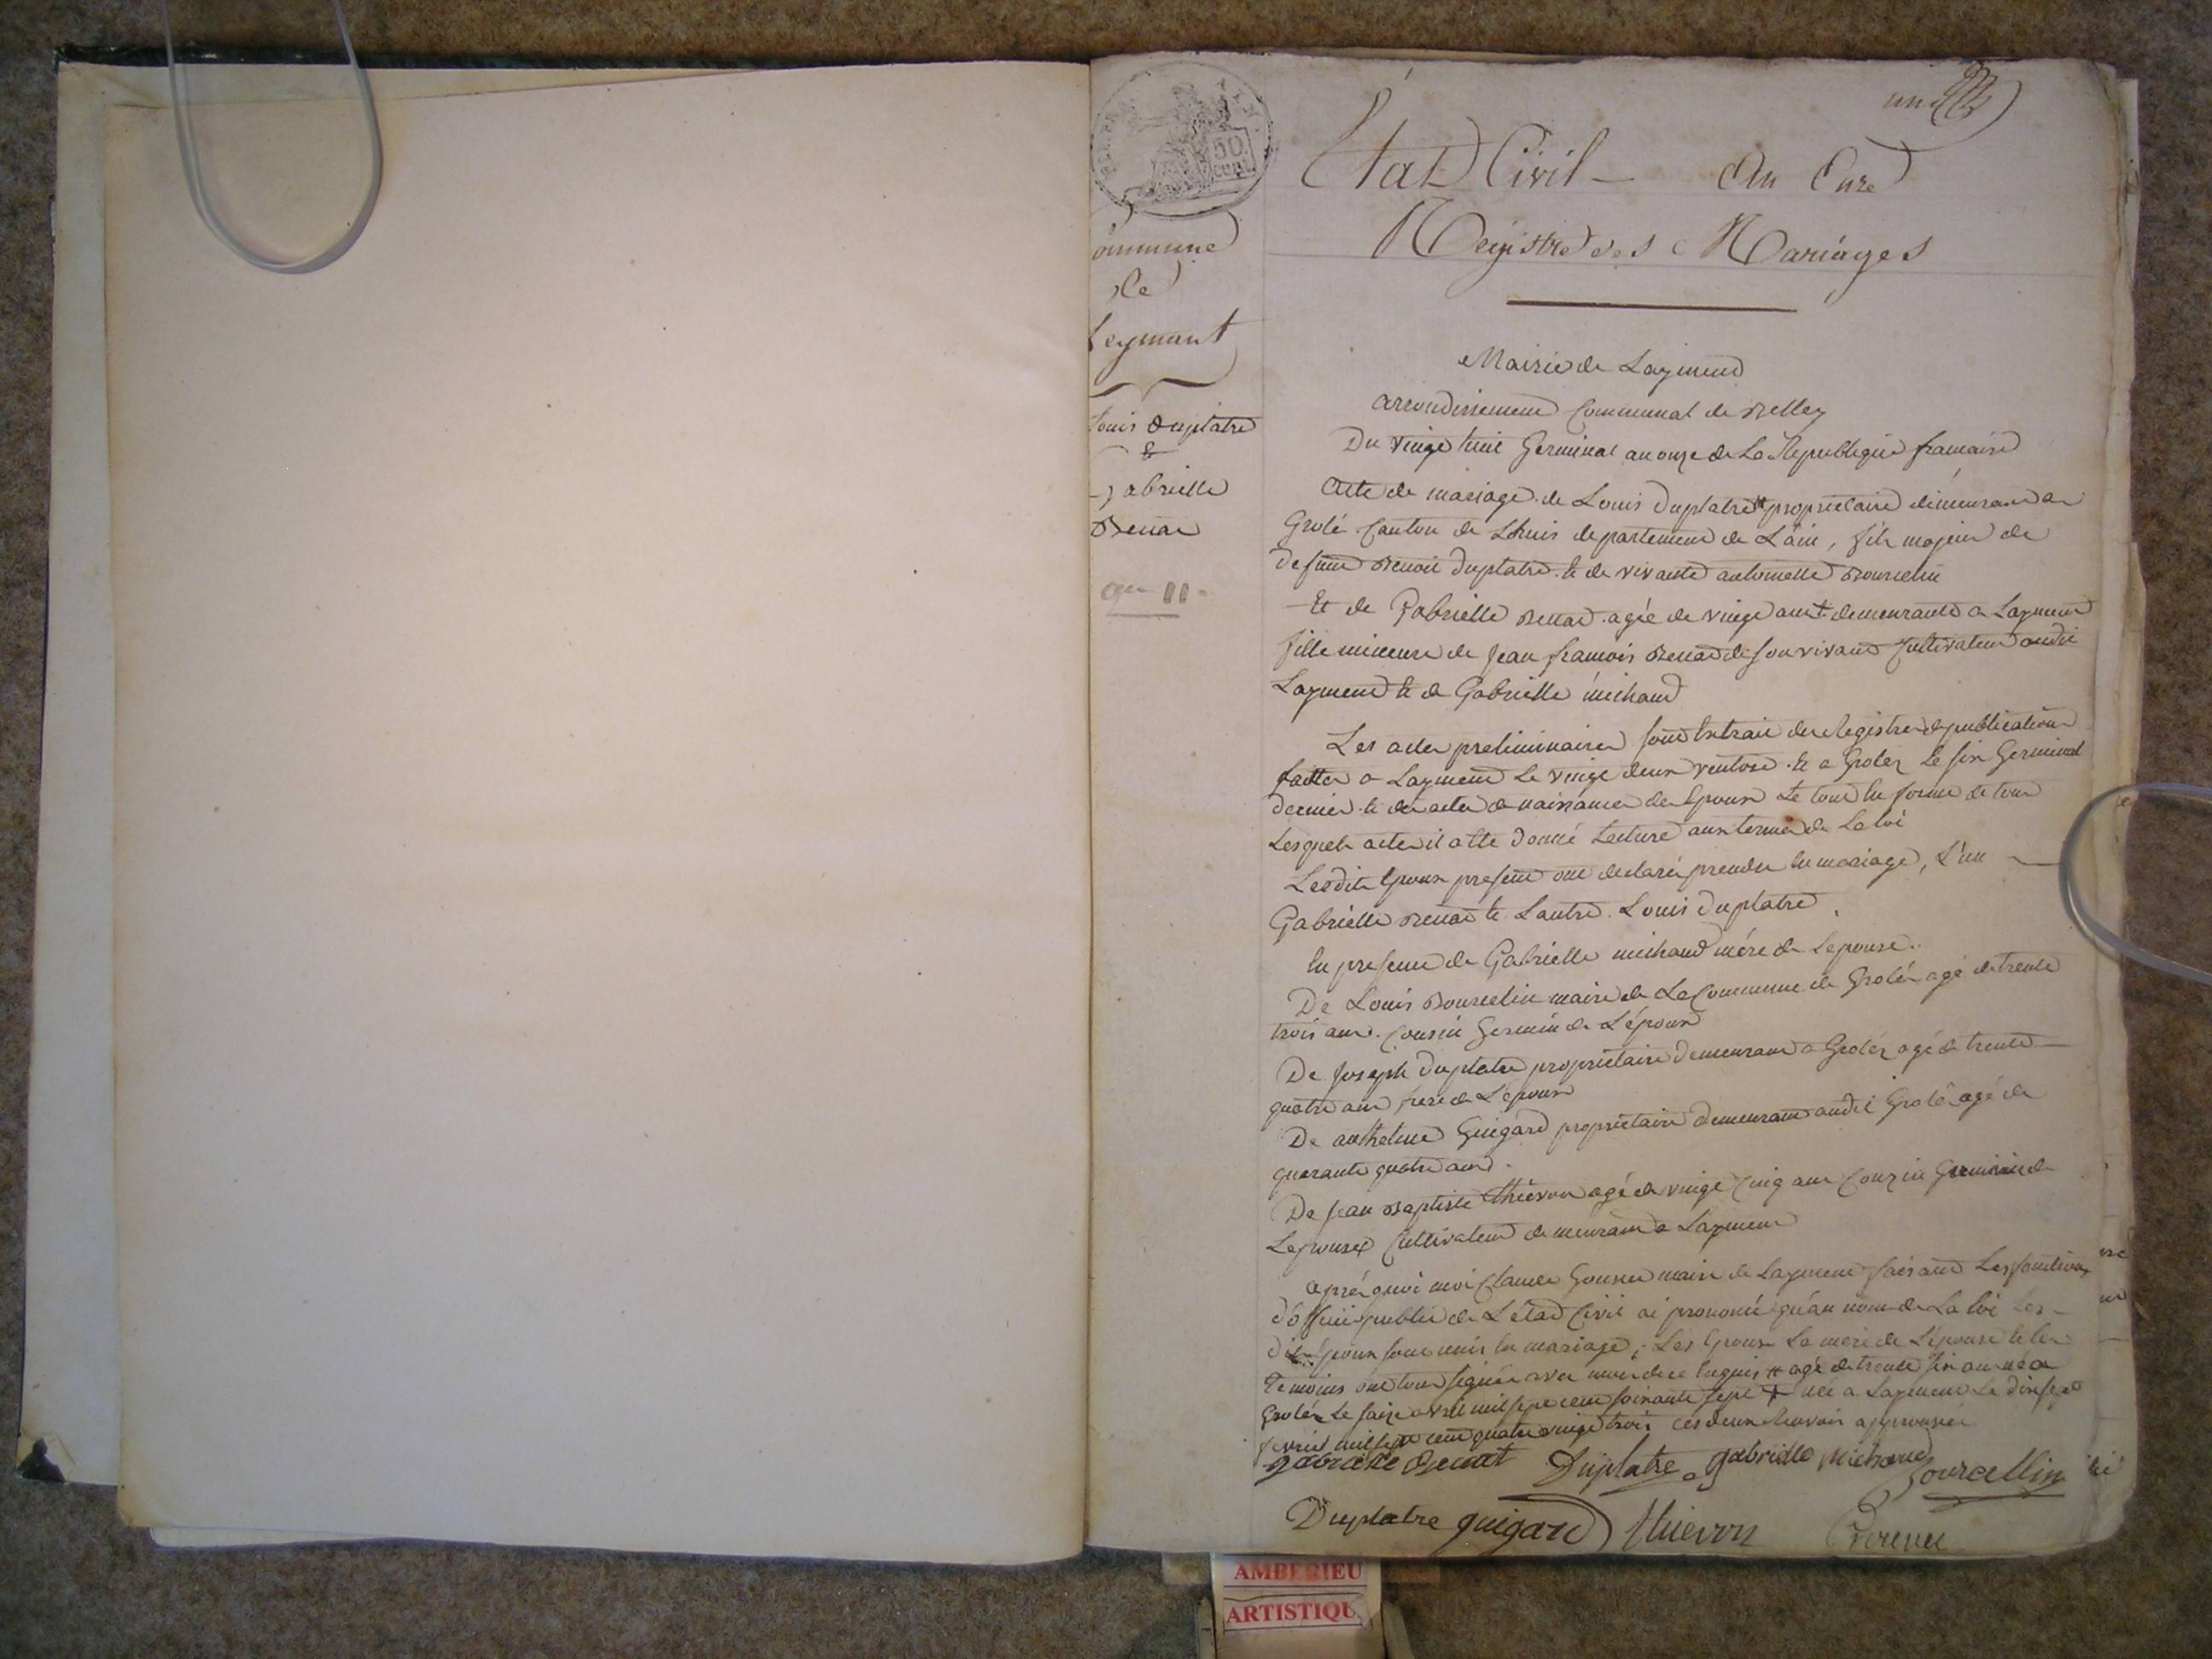 un
Etat Civil - An Onze
Registre des Mariages
50
cent
Commune
de
Leymant
Louis Duplatre
&
Gabrielle
Benat
an 11.
Mairie de Layment
arrondissement Communal de Belley
Du vingt huit Germinal an onze de La Republique francaise
Acte de mariage de Louis Duplatre # proprietaire demeurant a
Grolé Canton de Lhuis departement de L'ain, fils majeur de
defunt Benoit Duplatre et de vivante antoinette Bourcelin
Et de Gabrielle Benat agée de vingt ans + demeurante a Layment
fille mineure de Jean francois Benat de son vivant Cultivateur audit
Layment et de Gabrielle michaud
Les actes preliminaires sont Extrait des Registres de publication
faittes a Layment Le vingt deux ventose et a Groléz Le six Germinal
dernier et des actes de naissance des Epoux Le tout en forme de tous
Lesquels actes il a ete donné Lecture aux termes de La loi
Lesdits Epoux presents ont declaré prendre en mariage, L'un
Gabrielle Benat et Lautre Louis Duplatre
En presence de Gabrielle michaud mére de Lepouse.
De Louis Bourcelin maire de La Commune de Groléz agé de trente
trois ans. Cousin Germin de L'époux
De Joseph Duplatre proprietaire demeurant a Groléz agé de trente
quatre ans frere de L'epoux
De anthelme Guigard proprietaire demeurant audit Groléz agé de
quarante quatre ans.
De Jean Baptiste thievon agé de vingt Cinq ans Couzin Germain de
Lepouse Cultivateur demeurant a Layment
après quoi moi Claude maire de Layment faisant Les fonctions
d'officier public de L'état Civil ai prononcé qu'au nom de La loi Les
dits Epoux sont unis en mariage; Les Epoux La mere de L'épouse et les
temoins ont tous signé avec moi de ce Enquis # agé de trente six ans né a
Groléz Le seize avril mil sept cent soixante sept + née a Layment Le dix sept
fevrier mil sept cent quatre vingt trois ces deux Renvois approuvés
gabrielle Benat Duplatre gabrielle Michaud Bourcellin
Duplatre guigard thievon
AMBERIEU
ARTISTIQU